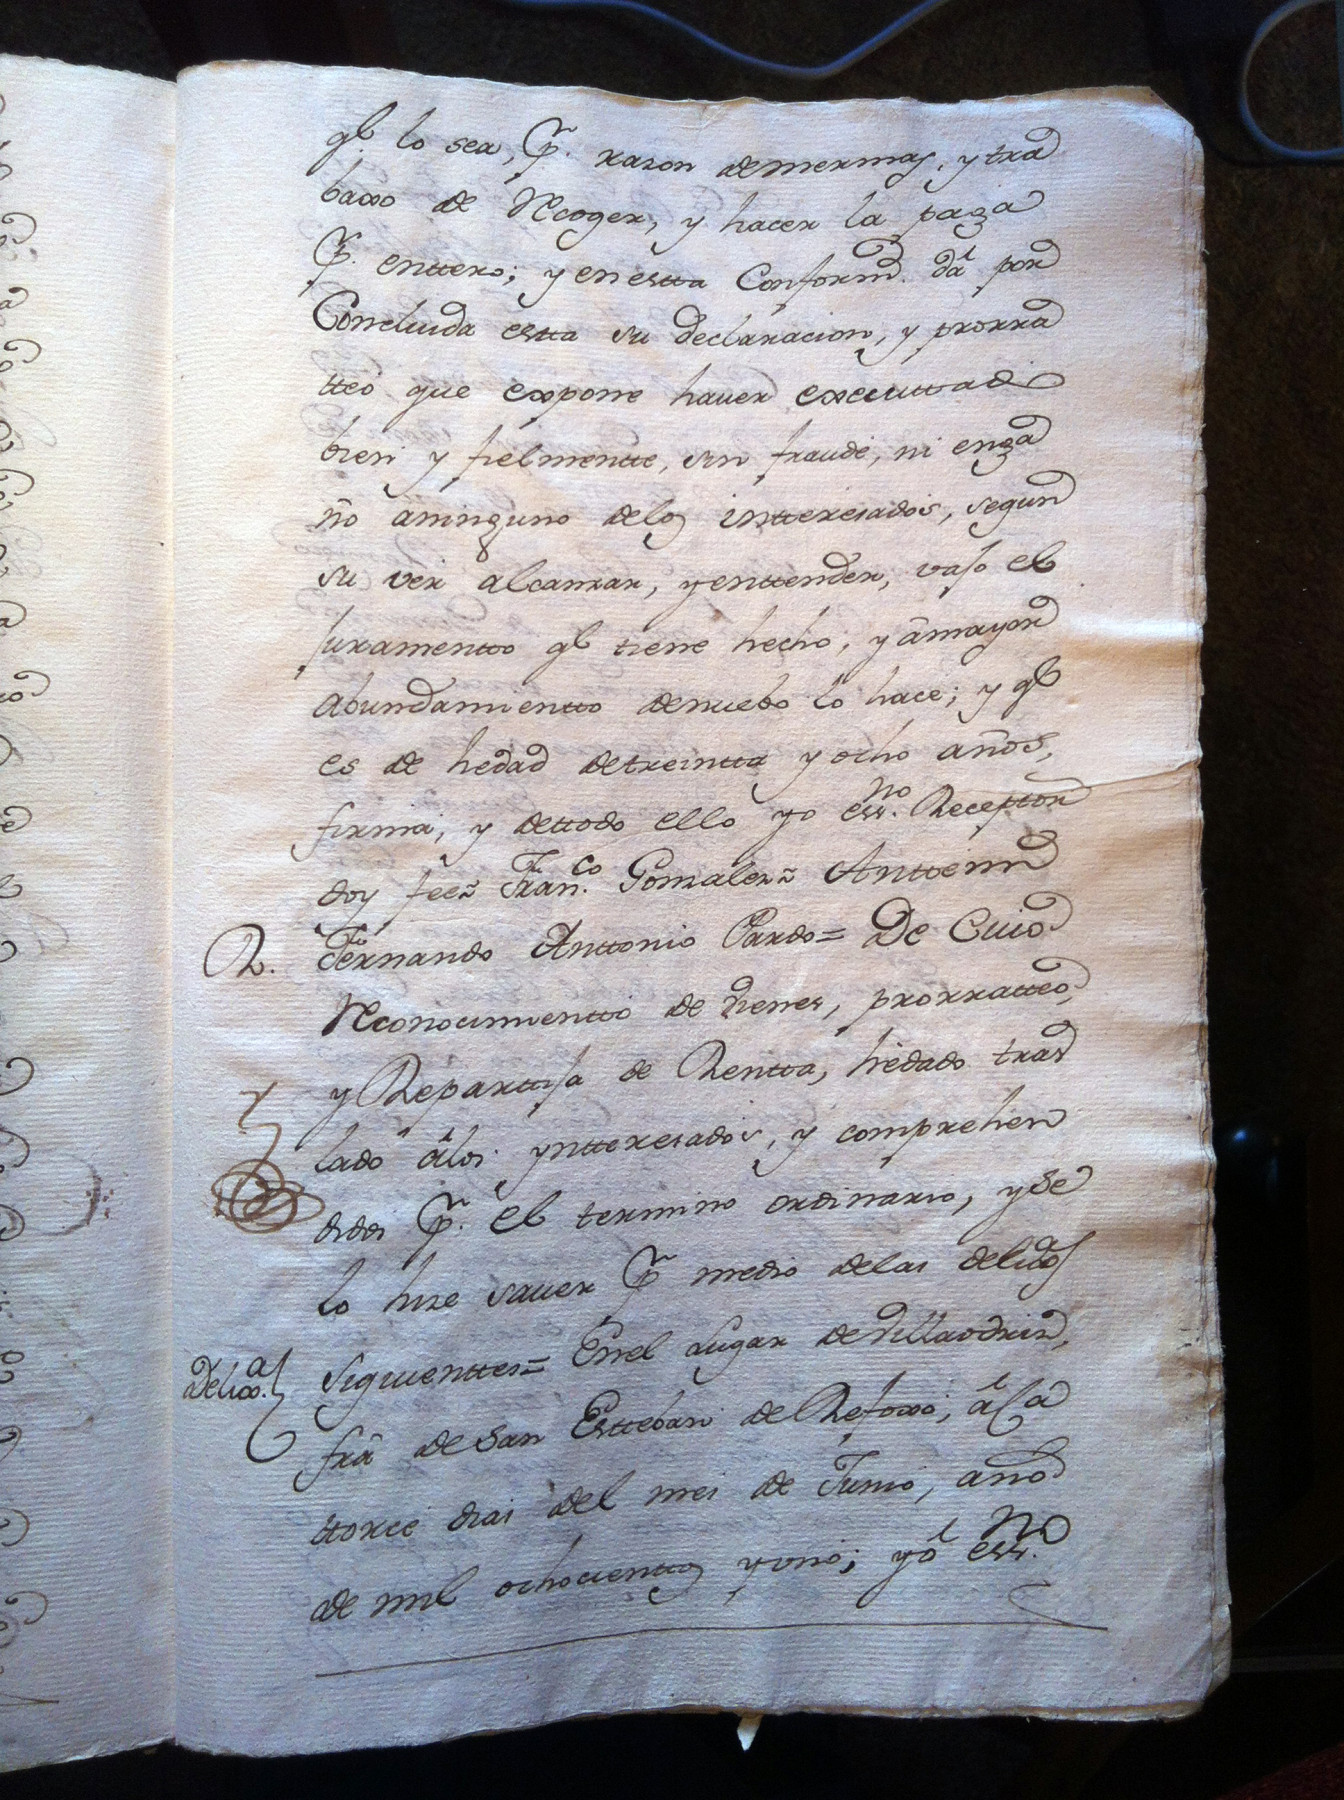 qe. lo sea, pr. razon de mermas, y tra
baxo de Recoger, y hacer la paga
pr. enttero; y en estta Conformd. da por
Concluida estta su declaracion, y prorra
tteo que expone haver executtado
bien y fielmentte, sin fraude, ni enga
ño a ninguno de los intteresados, segun
su ver alcanzar, y enttender, vajo el
juramentto qe tiene hecho, y a mayor
abundamientto de nuebo lo hace; y qe
es de hedad de treintta y ocho años,
firma, y de ttodo ello yo essno. Receptor
doy fee= Franco. Gonzalez= Antte mi
R. Fernando Anttonio Pardo= De Cuio
Reconocimientto de vienes, prorratteo,
y Reparttija de Rentta, he dado tras
lado a los ynteresados, y comprehen
didos pr. el termino ordinario, y se
lo hize saver pr medio de las delixas
siguienttes= En el lugar de Villaodrid,
Delixa. fra de San Estteban de Refoxo, a Ca
ttorce dias del mes de Junio, año
de mil ochocienttos y uno; yo el essno.